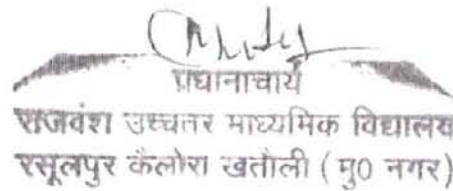 प्रधानाचार्य
राजवंश उच्चतर माध्यमिक विद्यालय
रसूलपुर कैलोरा खतौली ( मु0 नगर)